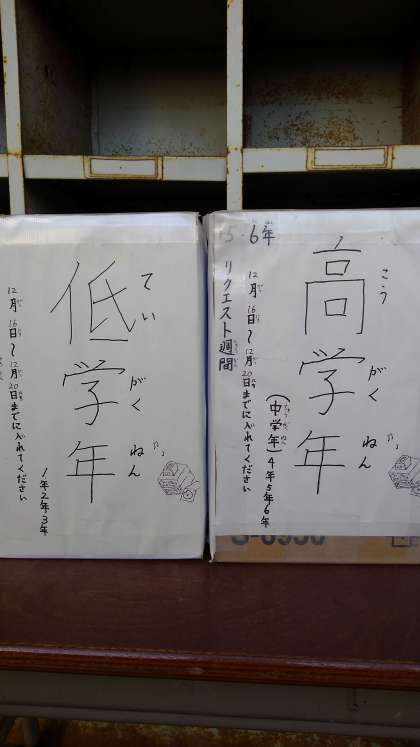 5・6年
高学年
こう
がく
ねん
(中学年) 4年5年6年
ちゅうがくねん
リクエスト週間
12月16日〜12月20日までに入れてください
低学年
てい
がく
ねん
1年2年3年
12月16日〜12月20日までに入れてください